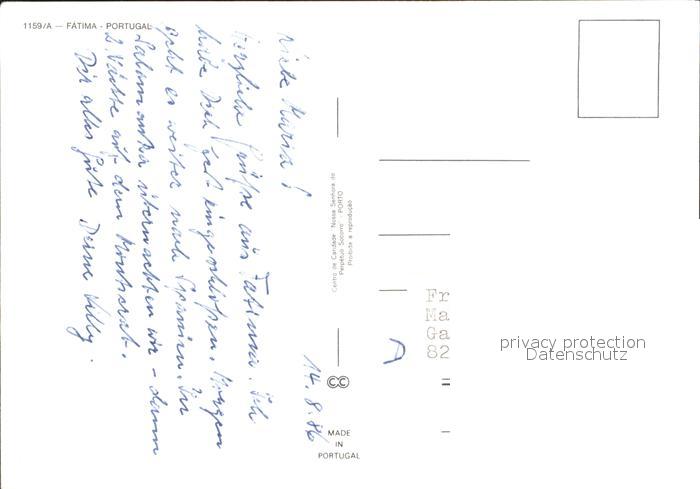 1159/A — FÁTIMA - PORTUGAL
14.8.86
Liebe Maria!
Herzliche Grüße aus Fatima. Ich
habe Dich gut eingeschlossen. Morgen
geht es weiter nach Spanien. In
Salamanka übernachten wir - dann
2 Nächte auf dem Montserrat.
Dir alles Gute Deine Killy.
Centro de Caridade "Nossa Senhora do
Perpétuo Socorro" - PORTO
Proibida a reprodução
MADE
IN
PORTUGAL
Fr
Ma
Ga
82
A
privacy protection
Datenschutz